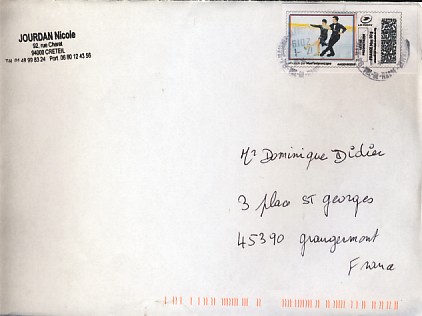 JOURDAN Nicole
92, rue Charat
94000 CRETEIL
49 99 83 24 Port. 06 80 12 43 56
Mr Dominique Didier
3 place ST georges
45390 grangermont
France